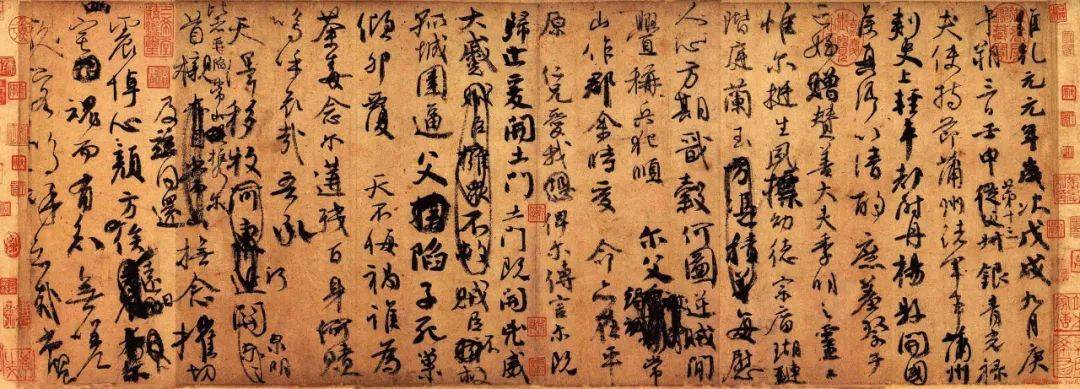 維乾元元年歲次戊戌九月庚
午朔三日壬申第十三從父叔銀青光祿
夫使持節蒲州諸軍事蒲州
刺史上輕車都尉丹楊縣開國
侯真卿以清酌庶羞祭于
亡姪贈贊善大夫季明之靈曰
惟爾挺生夙標幼德宗廟瑚璉
階庭蘭玉方憑積善每慰
人心方期戩穀何圖逆賊間
釁稱兵犯順爾父竭誠常
山作郡余時受命亦在平
原仁兄愛我俾爾傳言爾既
歸止爰開土門土門既開凶威
大蹙賊臣擁眾不救賊臣不救
孤城圍逼父陷子死巢
傾卵覆天不悔禍誰為
荼毒念爾遘殘百身何贖
嗚呼哀哉吾承
天澤移牧河關泉明
比者再陷常山攜爾
首櫬及茲同還撫念摧切
震悼心顏方俟遠日
宅魂而有知無嗟
久客嗚呼哀哉尚饗